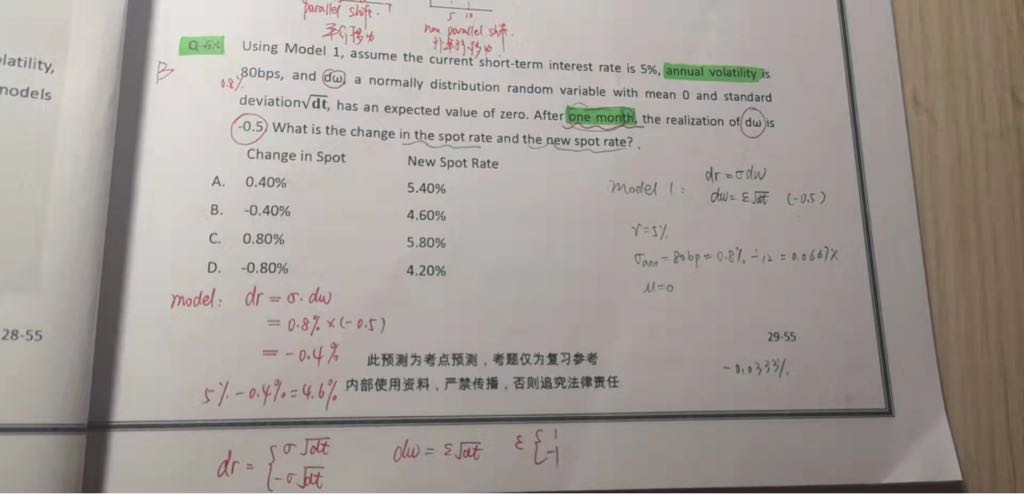 parallel shift.
平行移动
5 10
non parallel shift.
非平行移动
latility,
models
Q-54
B
Using Model 1, assume the current short-term interest rate is 5%, annual volatility is
0.8%
80bps, and dw, a normally distribution random variable with mean 0 and standard
deviation√dt, has an expected value of zero. After one month, the realization of dw is
-0.5. What is the change in the spot rate and the new spot rate?
Change in Spot New Spot Rate
A. 0.40% 5.40%
B. -0.40% 4.60%
C. 0.80% 5.80%
D. -0.80% 4.20%
model 1: dr=σdw
dw=ε√dt (-0.5)
r=5%
σann=80bp=0.8%÷12=0.0667%
μ=0
model: dr=σ·dw
=0.8%×(-0.5)
=-0.4%
5%-0.4%=4.6%
28-55
29-55
-0.0333%
此预测为考点预测，考题仅为复习参考
内部使用资料，严禁传播，否则追究法律责任
dr={σ√dt
-σ√dt
dw=ε√dt
ε{1
-1